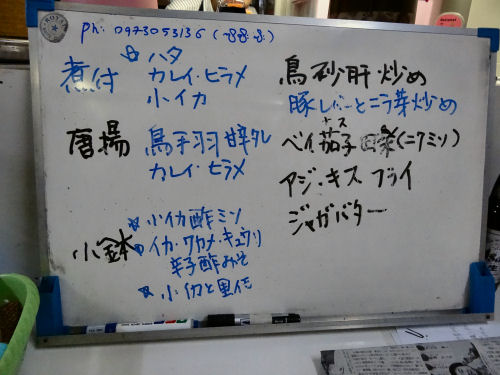 Ph: 0973053136
煮付
☆ハタ
カレイ・ヒラメ
小イカ
唐揚
鳥手羽 甘辛タレ
カレイ・ヒラメ
小鉢
小イカ酢ミソ
イカ・ワカメ・キュウリ
辛子酢みそ
小イカと里いも
鳥砂肝炒め
豚レバーとニラ芽炒め
ナス
ベイ茄子田楽(ニクミソ)
アジ・キス フライ
ジャガバター